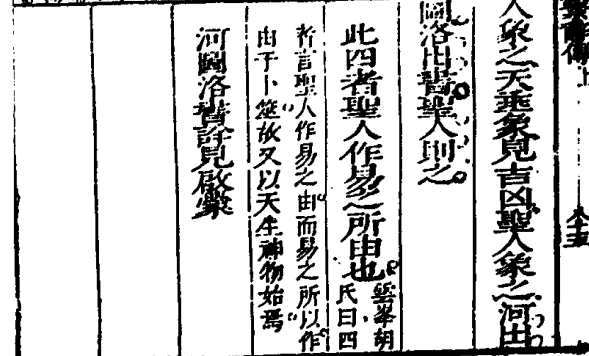 繫辭傳上
人象之天垂象見吉凶聖人象之河出
圖洛出書聖人則之
此四者聖人作易之所由也
雲峯胡
氏曰四
者言聖人作易之由而易之所以作
由于卜筮故又以天生神物始焉
河圖洛書詳見啟蒙